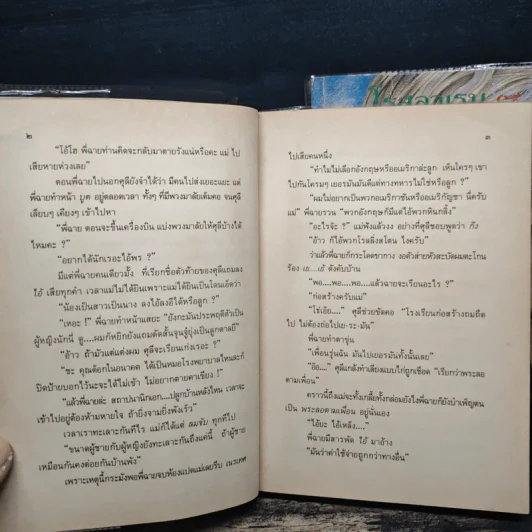 โรงแรม
๒
"โอ้โฮ พี่ฉายท่านคิดจะกลับมาตายรังแน่หรือคะ แม่ ไป
เสียหายห่วงเลย"
ตอนพี่ฉายไปนอกศุลียังจำได้ว่า มีคนไปส่งเยอะแยะ แต่
พี่ฉายทำหน้า บูด อยู่ตลอดเวลา ทั้งๆ ที่มีพวงมาลัยเต็มคอ จนศุลี
เลียบๆ เคียงๆ เข้าไปหา
"พี่ฉาย ตอนจะขึ้นเครื่องบิน แบ่งพวงมาลัยให้ศุลีบ้างได้
ไหมคะ ?"
"อยากได้นักเรอะไอ้พร ?"
มีแต่พี่ฉายคนเดียวนั้น ที่เรียกชื่อตัวท้ายของศุลีแถมลง
ไอ้ เสียทุกคำ เวลาแม่ไม่ได้ยินเพราะแม่ได้ยินเป็นโดนเอ็ดว่า
"น้องเป็นสาวเป็นนาง ลงไอ้ลงอีได้หรือลูก ?"
"เหอะ !" พี่ฉายทำหน้าแสยะ "ยังกะมันประพฤติตัวเป็น
ผู้หญิงนักนี่ ดู....ผมก็หยิกยังแถมตัดสั้นจุนจู๋ยุ่งเป็นลูกตาลยี"
"อ้าว ถ้ามัวแต่แต่งผม ศุลีจะเรียนเก่งเรอะ ?"
"ชะ คุณด็อกในอนาคต ได้เป็นหมอโรงพยาบาลไหนละก้
ปิดป้ายบอกไว้นะจะได้ไม่เข้า ไม่อยากตายคาเขียง !"
"แล้วพี่ฉายล่ะ สถาปนานึกเอก....ปลูกบ้านหลังไหน เวลาจะ
เข้าไปอยู่ต้องห้ามหายใจ ถ้ายังจามยิ่งพังเร็ว"
เวลาเราทะเลาะกันทีไร แม่ก็ได้แต่ ลมจับ ทุกทีไป
"ขนาดผู้ชายกับผู้หญิงยังทะเลาะกันถึงแค่นี้ ถ้าผู้ชาย
เหมือนกันคงต่อยกันบ้านพัง"
เพราะเหตุนี้กระมังพอพี่ฉายจบห้องแปดแม่เลยรีบ เนรเทศ
๓
ไปเสียคนหนึ่ง
"ทำไมไม่เลือกอังกฤษหรืออเมริกาล่ะลูก เห็นใครๆ เขา
ไปกันโครมๆ เยอรมันมันดีแต่ทางทหารไม่ใช่หรือลูก ?"
"ผมไม่อยากเป็นพวกอเมริกาขันหรืออเมริกัญชา นี่ครับ
แม่" พี่ฉายรวน "พวกอังกฤษก็มีแต่ไอ้พวกหินกลิ้ง"
"อะไรจ๊ะ ?" แม่ฟังแล้วงง อย่างที่ศุลีชอบพูดว่า กัง
"อ้าว ก็ไอ้พวกโรลลิ่งสโตน ไงครับ"
ว่าแล้วพี่ฉายก็กระโดดขาถาง งอตัวส่ายหัวสะบัดผมตะโกน
ร้อง เย....เย้ ดังคับบ้าน
"พอ....พอ....พอ....แล้วฉายจะเรียนอะไร ?"
"ก่อสร้างครับแม่"
"โธ่เอ๊ย...." ศุลีช่วยขัดคอ "โรงเรียนก่อสร้างถมถืด
ไป ไม่ต้องถ่อไปเย-ระ-มัน"
พี่ฉายทำตาขุ่น
"เพื่อนรุ่นฉัน มันไปเยอรมันทั้งนั้นเลย"
"อ๊อ...." ศุลีแกล้งทำเสียงแบบไก่ถูกเชือด "เรียกว่าพระลอ
ตามเพื่อน"
คราวนี้ถึงแม่จะทั้งเกลี้ยทั้งกล่อมยังไงพี่ฉายก็ยังบำเพ็ญตน
เป็น พระลอตามเพื่อน อยู่นั่นเอง
"โอ้ยะ โอ้เหลิ่ง...."
พี่ฉายมีสารพัด โอ้ มาอ้าง
"มันว่าค่าใช้จ่ายถูกกว่าทางอื่น"